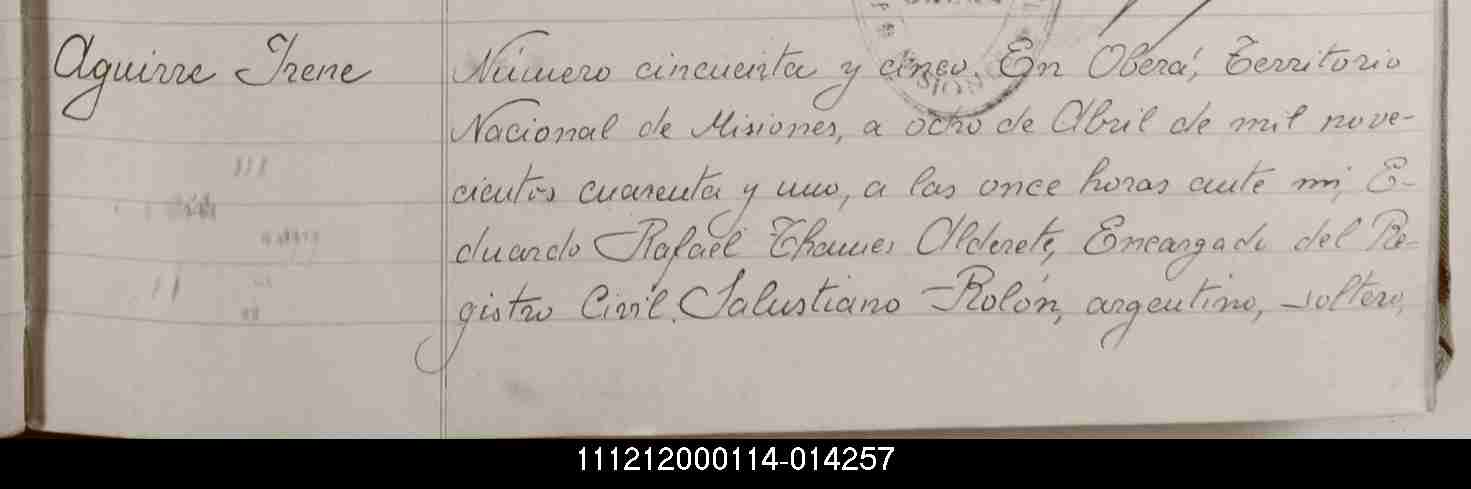 Aguirre Irene
Número cincuenta y cinco. En Oberá, Territorio
Nacional de Misiones, a ocho de Abril de mil nove-
cientos cuarenta y uno, a las once horas ante mi, E-
duardo Rafael Thames Alderete, Encargado del Re-
gistro Civil. Salustiano Rolón, argentino, soltero,
111212000114-014257